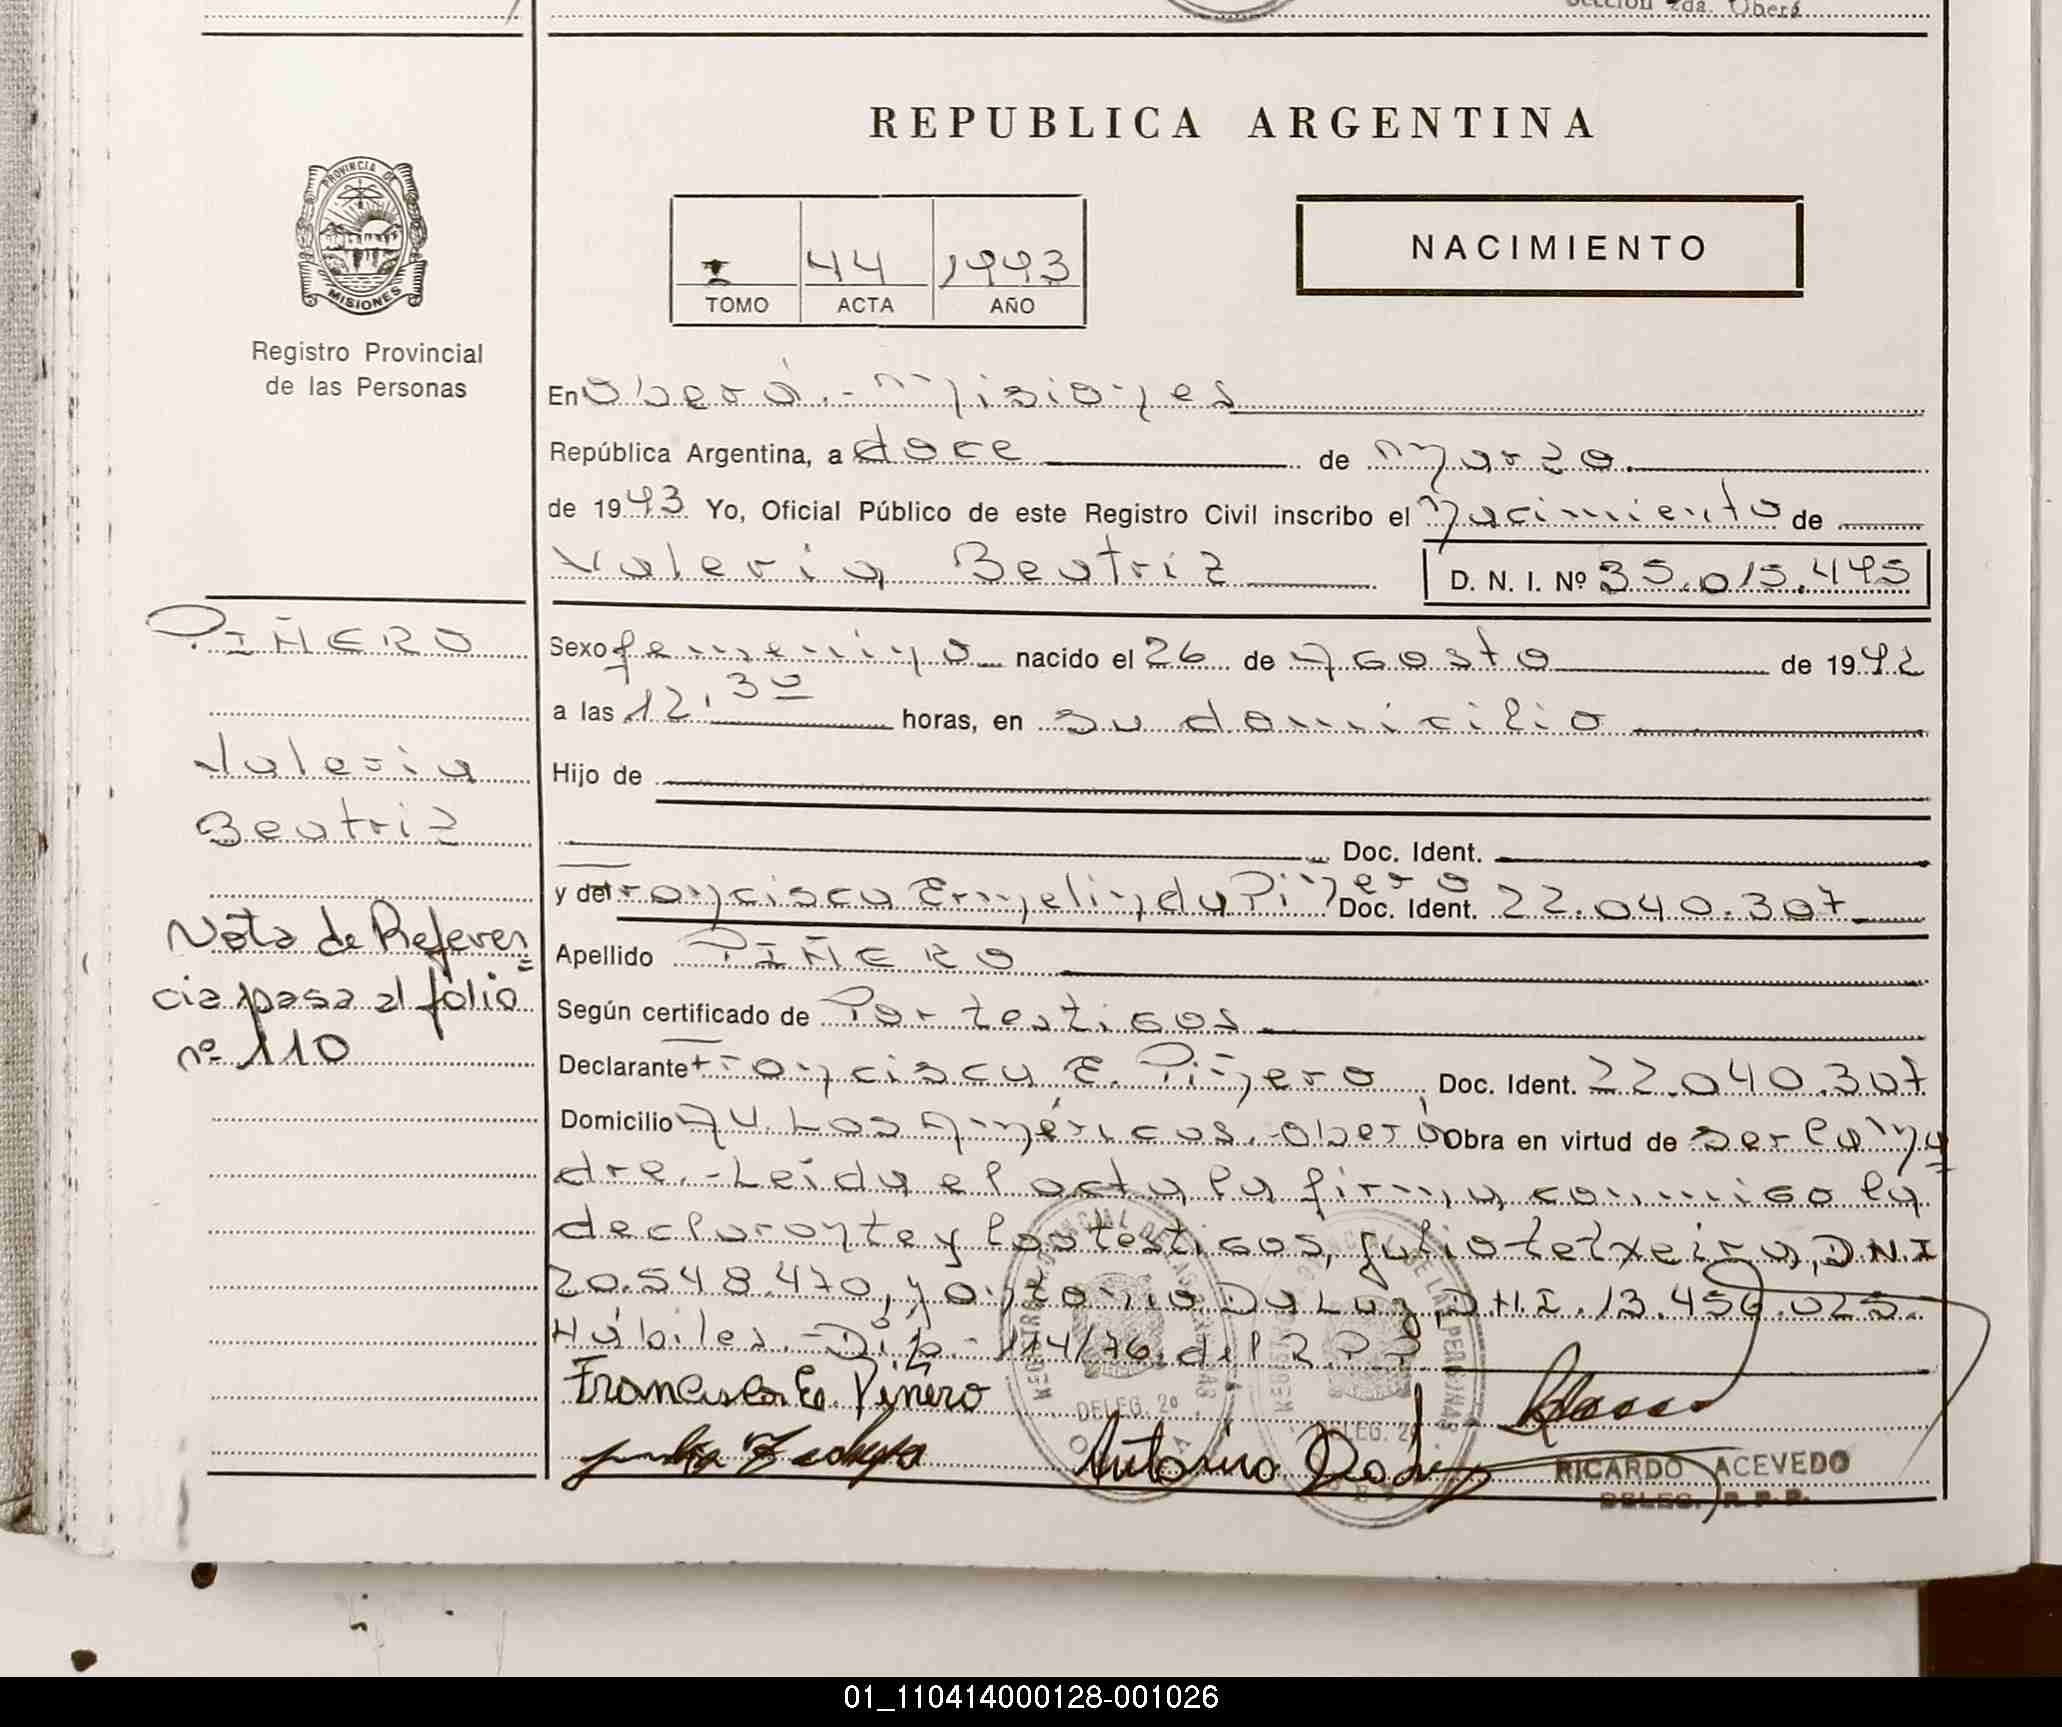 Sección 2da. Oberá
REPUBLICA ARGENTINA
PROVINCIA DE
MISIONES
Registro Provincial
de las Personas
I 44 1993
TOMO ACTA AÑO
NACIMIENTO
En Oberá.- Misiones
República Argentina, a doce de marzo.
de 1993 Yo, Oficial Público de este Registro Civil inscribo el Nacimiento de
Valeria Beatriz D. N. I. Nº 35.015.495
PIÑERO
Valeria
Beatriz
Nota de Referen
cia pasa al folio
nº 110
Sexo femenino nacido el 26 de Agosto de 1992
a las 12,30 horas, en su domicilio
Hijo de
Doc. Ident.
y de Francisca Ermelinda Piñero Doc. Ident. 22.040.307
Apellido PIÑERO
Según certificado de Por testigos
Declarante Francisca E. Piñero Doc. Ident. 22.040.307
Domicilio Av. Las Américas.-Oberá Obra en virtud de ser la ma
dre.-Leida el acta, la firma, conmigo la
declarante y los testigos, Julio tetxeira, D.N.I
20.548.470, y antonio Da Luz, D.N.I. 13.456.025.
Hábiles.-Dip.-114/76. del R.P.P.
Francisca E. Piñero
Antonio
DELEG. 2º
RICARDO ACEVEDO
DELEG. R.P.P.
01_110414000128-001026